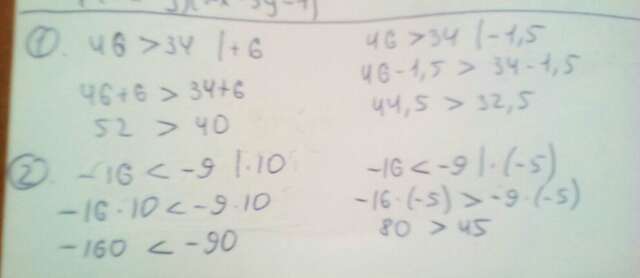 ① 46 > 34 | + 6
46+6 > 34+6
52 > 40
46 > 34 | -1,5
46-1,5 > 34-1,5
44,5 > 32,5
② -16 < -9 | · 10
-16 · 10 < -9 · 10
-160 < -90
-16 < -9 | · (-5)
-16 · (-5) > -9 · (-5)
80 > 45